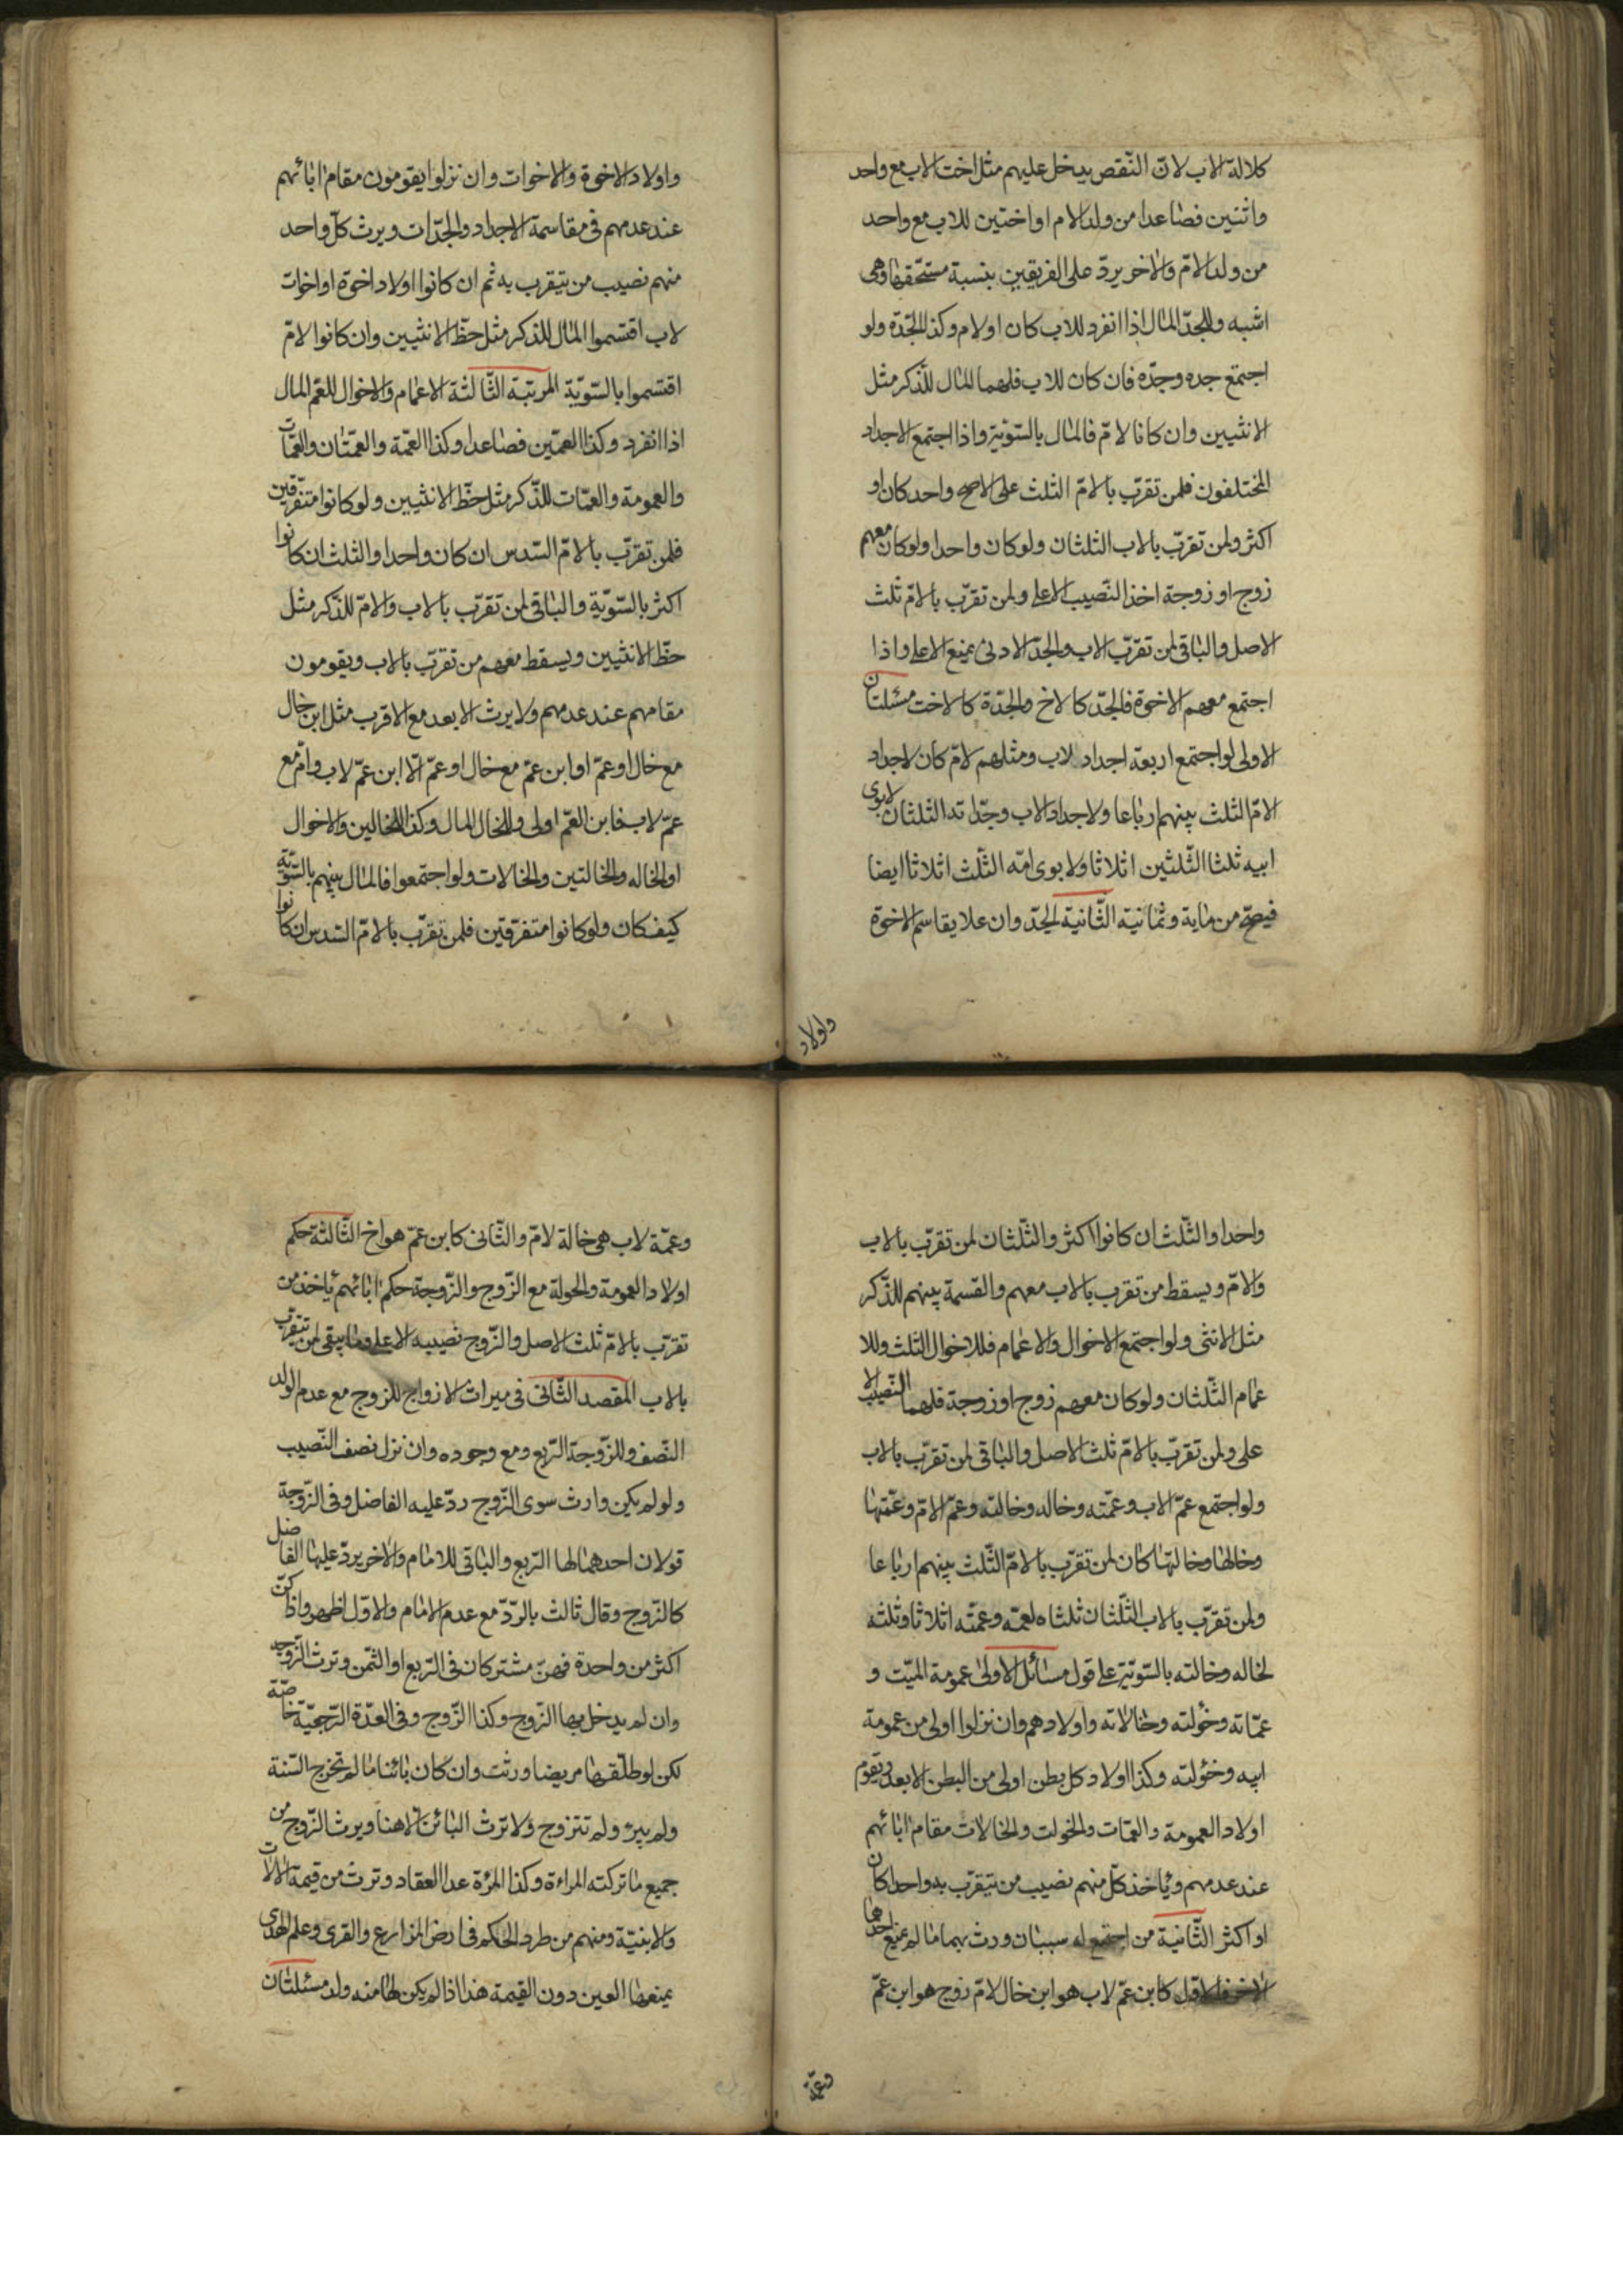 كلالة الاب لانّ النّقص يدخل عليهم مثل اخت الاب مع واحد
واثنين فصاعدا من ولد الام او اختين للاب مع واحد
من ولد الامّ والاخر يردّ على الفريقين بنسبة مستحقّهما وهى
اشبه وللجدّ المال اذا انفرد للاب كان او لام وكذا للجّدة ولو
اجتمع جده وجدّه فان كان للاب فلهما المال للّذكر مثل
الانثيين وان كانا لامّ فالمال بالسّويّة واذا اجتمع الاجداد
المختلفون فلمن تقرّب بالامّ الثلث على الاصح واحد كان او
اكثر ولمن تقرّب بالاب الثلثان ولو كان واحدا ولو كان معهم
زوج او زوجة اخذ النّصيب الاعلى ولمن تقرّب بالامّ ثلث
الاصل والباقى لمن تقرّب الاب والجدّ الادنى يمنع الاعلى واذا
اجتمع معهم الاخوة فالجدّ كالاخ والجدّة كالاخت مسئلتان
الاولى لو اجتمع اربعة اجداد لاب ومثلهم لامّ كان لاجداد
الامّ الثلث بينهم ارباعا ولاجداد الاب وجدّاته الثلثان لابوى
ابيه ثلثا الثّلثين اثلاثا ولابوى امّه الثّلث اثلاثا ايضا
فيصحّ من ماية وثمانية الثّانية الجدّ وان علا يقاسم الاخوة
واولاد
واولاد الاخوة والاخوات وان نزلوا يقومون مقام ابائهم
عند عدمهم فى مقاسمة الاجداد والجدّات ويرث كلّ واحد
منهم نصيب من يتقرب به ثم ان كانوا اولاد اخوة او اخوات
لاب اقتسموا المال للذكر مثل حظّ الانثيين وان كانوا لامّ
اقتسموا بالسّويّة المرتبة الثّالثة الاعمام والاخوال للعّم المال
اذا انفرد وكذا العمّين فصاعدا وكذا العمّة والعمّتان والعمّات
والعمومة والعمّات للذّكر مثل حظّ الانثيين ولو كانوا متفرّقين
فلمن تقرّب بالامّ السّدس ان كان واحدا والثلث ان كانوا
اكثر بالسّويّة والباقى لمن تقرّب بالاب والامّ للذّكر مثل
حظّ الانثيين ويسقط معهم من تقرّب بالاب ويقومون
مقامهم عند عدمهم ولا يرث الابعد مع الاقرب مثل ابن خال
مع خال او عمّ او ابن عمّ مع خال او عمّ الّا ابن عمّ لاب وامّ مع
عمّ لاب فابن العمّ اولى وللخال المال وكذا للخالين والاخوال
او الخاله والخالتين والخالات ولو اجتمعوا فالمال بينهم بالسّويّة
كيف كان ولو كانوا متفرّقين فلمن تقرّب بالامّ السّدس ان كانوا
واحدا والثّلث ان كانوا اكثر والثّلثان لمن تقرّب بالاب
والامّ ويسقط من تقرب بالاب معهم والقسمة بينهم للذّكر
مثل الانثى ولو اجتمع الاخوال والاعمام فللاخوال الثلث وللا
عمام الثّلثان ولو كان معهم زوج او زوجة فلهما النّصيب الا
على ولمن تقرّب بالامّ ثلث الاصل والباقى لمن تقرّب بالاب
ولو اجتمع عمّ الاب وعمّته وخاله وخالته وعمّ الامّ وعمّتها
وخالها وخالتها كان لمن تقرّب بالامّ الثّلث بينهم ارباعا
ولمن تقرّب بالاب الثّلثان ثلثاه لعمّه وعمّته اثلاثا وثلثه
لخاله وخالته بالسّويّة على قول مسائل الاولى عمومة الميّت و
عمّاته وخؤلته وخالاته واولادهم وان نزلوا اولى من عمومة
ابيه وخؤلته وكذا اولاد كل بطن اولى من البطن الابعد ويقوم
اولاد العمومة والعمّات والخولت والخالات مقام ابائهم
عند عدمهم وياخذ كلّ منهم نصيب من يتقرّب به واحدا كان
او اكثر الثّانية من اجتمع له سببان ورث بهما ما لم يمنع احدهما
الاخر فالاوّل كابن عمّ لاب هو ابن خال لامّ زوج هو ابن عمّ
وعمّة
وعمّة لاب هى خالة لامّ والثّانى كابن عمّ هو اخ الثّالثة حكم
اولاد العمومة والخولة مع الزّوج والزّوجة حكم ابائهم ياخذ من
تقرّب بالامّ ثلث الاصل والزّوج نصيبه الاعلى وما يبقى لمن يتقرّب
بالاب المقصد الثّانى فى ميراث الازواج للزوج مع عدم الولد
النّصف وللزّوجة الرّبع ومع وجوده وان نزل نصف النّصيب
ولو لم يكن وارث سوى الزّوج ردّ عليه الفاضل وفى الزّوجة
قولان احدهما لها الرّبع والباقى للامام والاخر يردّ عليها الفاضل
كالزّوج وقال ثالث بالرّدّ مع عدم الامام والاوّل اظهر واذا كنّ
اكثر من واحدة فهنّ مشتركان فى الرّبع او الثّمن وترث الزّوجه
وان لم يدخل بها الزّوج وكذا الزّوج وفى العدّة الرّجعيّة خاصّة
لكن لو طلّقها مريضا ورثت وان كان بائنا ما لم تخرج السّنة
ولم يبرء ولم تتزوج ولا ترث البائن الّا هنا ويرث الزّوج من
جميع ما تركته المراءة وكذا المرءة عدا العقار وترث من قيمة الالات
والابنيّة ومنهم من طرد الحكم فى ارض المزارع والقرى وعلم الهدى
يمنعها العين دون القيمة هذا اذا لم يكن لها منه ولد مسئلتان